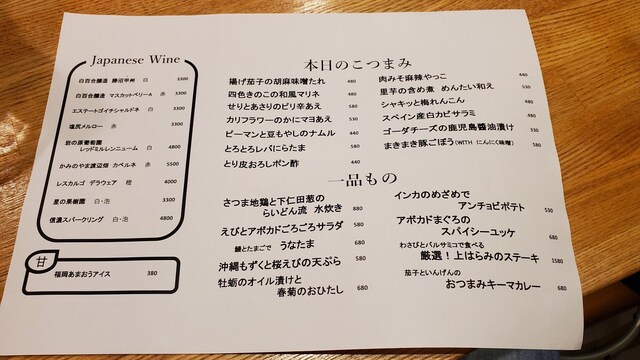 Japanese Wine
白百合醸造 勝沼甲州 白 3300
白百合醸造 マスカットベリーA 赤 3300
エステートゴイチシャルドネ 白 3300
塩尻メルロー 赤 3300
岩の原葡萄園
レッドミルレンニューム 白 4800
かみのやま渡辺畑 カベルネ 赤 5500
レスカルゴ デラウェア 橙 4000
星の果樹園 白・泡 3300
信濃スパークリング 白・泡 4800
甘
福岡あまおうアイス 380
本日のこつまみ
揚げ茄子の胡麻味噌だれ 480
四色きのこの和風マリネ 480
せりとあさりのピリ辛あえ 580
カリフラワーのかにマヨあえ 530
ピーマンと豆もやしのナムル 440
とろとろレバにらたま 580
とり皮おろしポン酢 440
肉みそ麻辣やっこ 440
里芋の含め煮 めんたい和え 530
シャキッと梅れんこん 480
スペイン産白カビサラミ 480
ゴーダチーズの鹿児島醤油漬け 330
まきまき豚ごぼう(WITH にんにく味噌) 580
一品もの
さつま地鶏と下仁田葱の
らいどん流 水炊き 880
えびとアボカドごろごろサラダ 580
鰻とたまごで うなたま 680
沖縄もずくと桜えびの天ぷら 580
牡蛎のオイル漬けと
春菊のおひたし 680
インカのめざめで
アンチョビポテト 530
アボカドまぐろの
スパイシーユッケ 680
わさびとバルサミコで食べる
厳選!上はらみのステーキ 1580
茄子といんげんの
おつまみキーマカレー 680